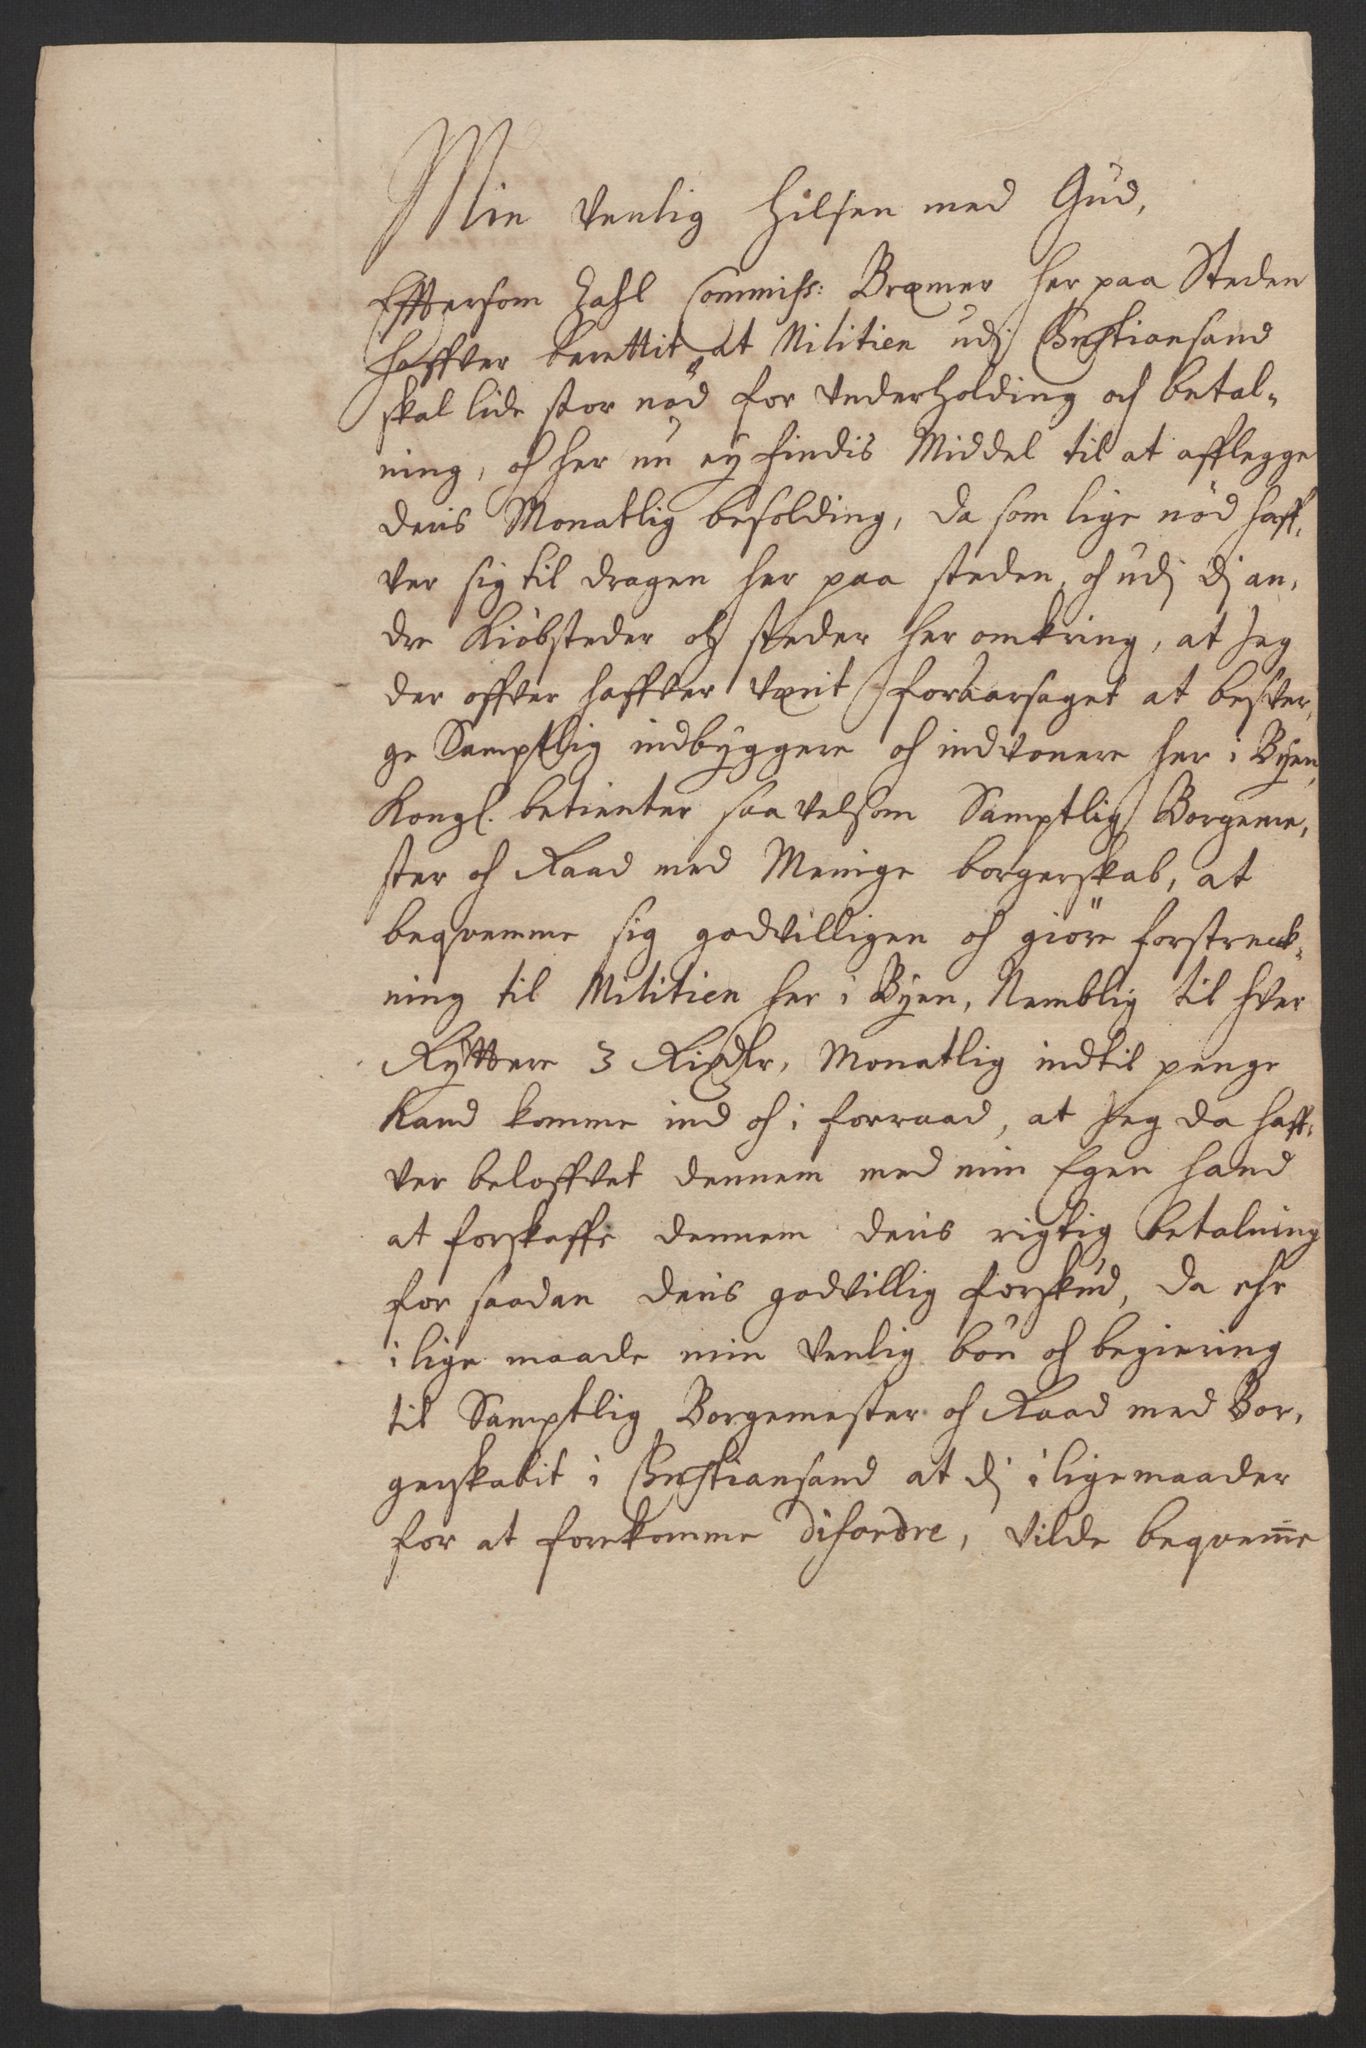 Min Venlig Hilsen med Gud,
Efftersom Zahl Commiss: Bræmer her paa Steden
haffver berettit at Militien udj Christiansand
skal lide stor nöd for Underholding och betal-
ning, och her nu ey findis Middel til at afflegge
deris Monatlig besolding, da som lige nöd haff-
ver sig til dragen her paa steden, och udj dj an-
dre Kiöbsteder och steder her omkring, at Jeg
der offver haffver værit foraarsaget at besver-
ge Samptlig indbyggere och indvonere her i Byen,
Kongl. betienter saa velsom Samptlig Borgeme-
ster och Raad med Menige borgerskab, at
beqvemme sig godvilligen och giöre forstreck-
ning til Militien her i Byen, Nemblig til hver
Ryttere 3 Rixdlr, Monatlig indtil penge
kand komme ind och i forraad, at Jeg da haff-
ver beloffvet dennem med min Egen hand
at forskaffe dennem deris rigtig betalning
for saadan deris godvillig forskud, da ehr
i lige maade min Venlig bön och begiering
til Samptlig Borgemester och Raad med Bor-
gerskabit i Christiansand at dj i ligemaader
for at forekomme disordre, vilde beqveme